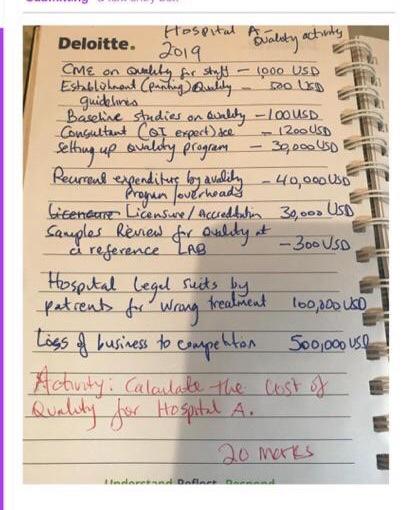 Deloitte.
Hospital A - Quality activity
2019
CME on Quality for staff - 1000 USD
Establishment (printing) Quality - 500 USD
guidelines
Baseline studies on Quality - 100 USD
Consultant (QI expert) fee - 1200 USD
Setting up Quality program - 30,000 USD
Recurrent expenditure by quality - 40,000 USD
Program overheads
Licensure Licensure/Accreditation 30,000 USD
Samples Review for Quality at
a reference LAB - 300 USD
Hospital Legal suits by
patients for wrong treatment 100,000 USD
Loss of business to competitor 500,000 USD
Activity: Calculate the Cost of
Quality for Hospital A.
20 marks
Understand Reflect Respond